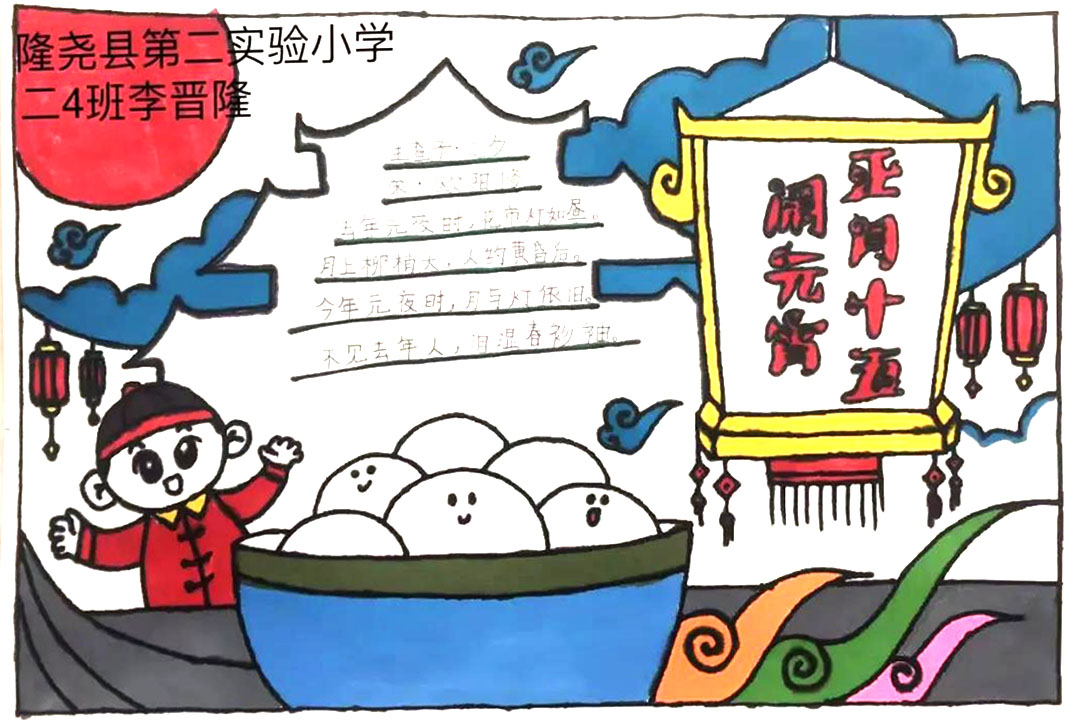 隆尧县第二实验小学
二4班李晋隆
生查子·元夕
宋·欧阳修
去年元夜时，花市灯如昼。
月上柳梢头，人约黄昏后。
今年元夜时，月与灯依旧。
不见去年人，泪湿春衫袖。
正月十五
闹元宵